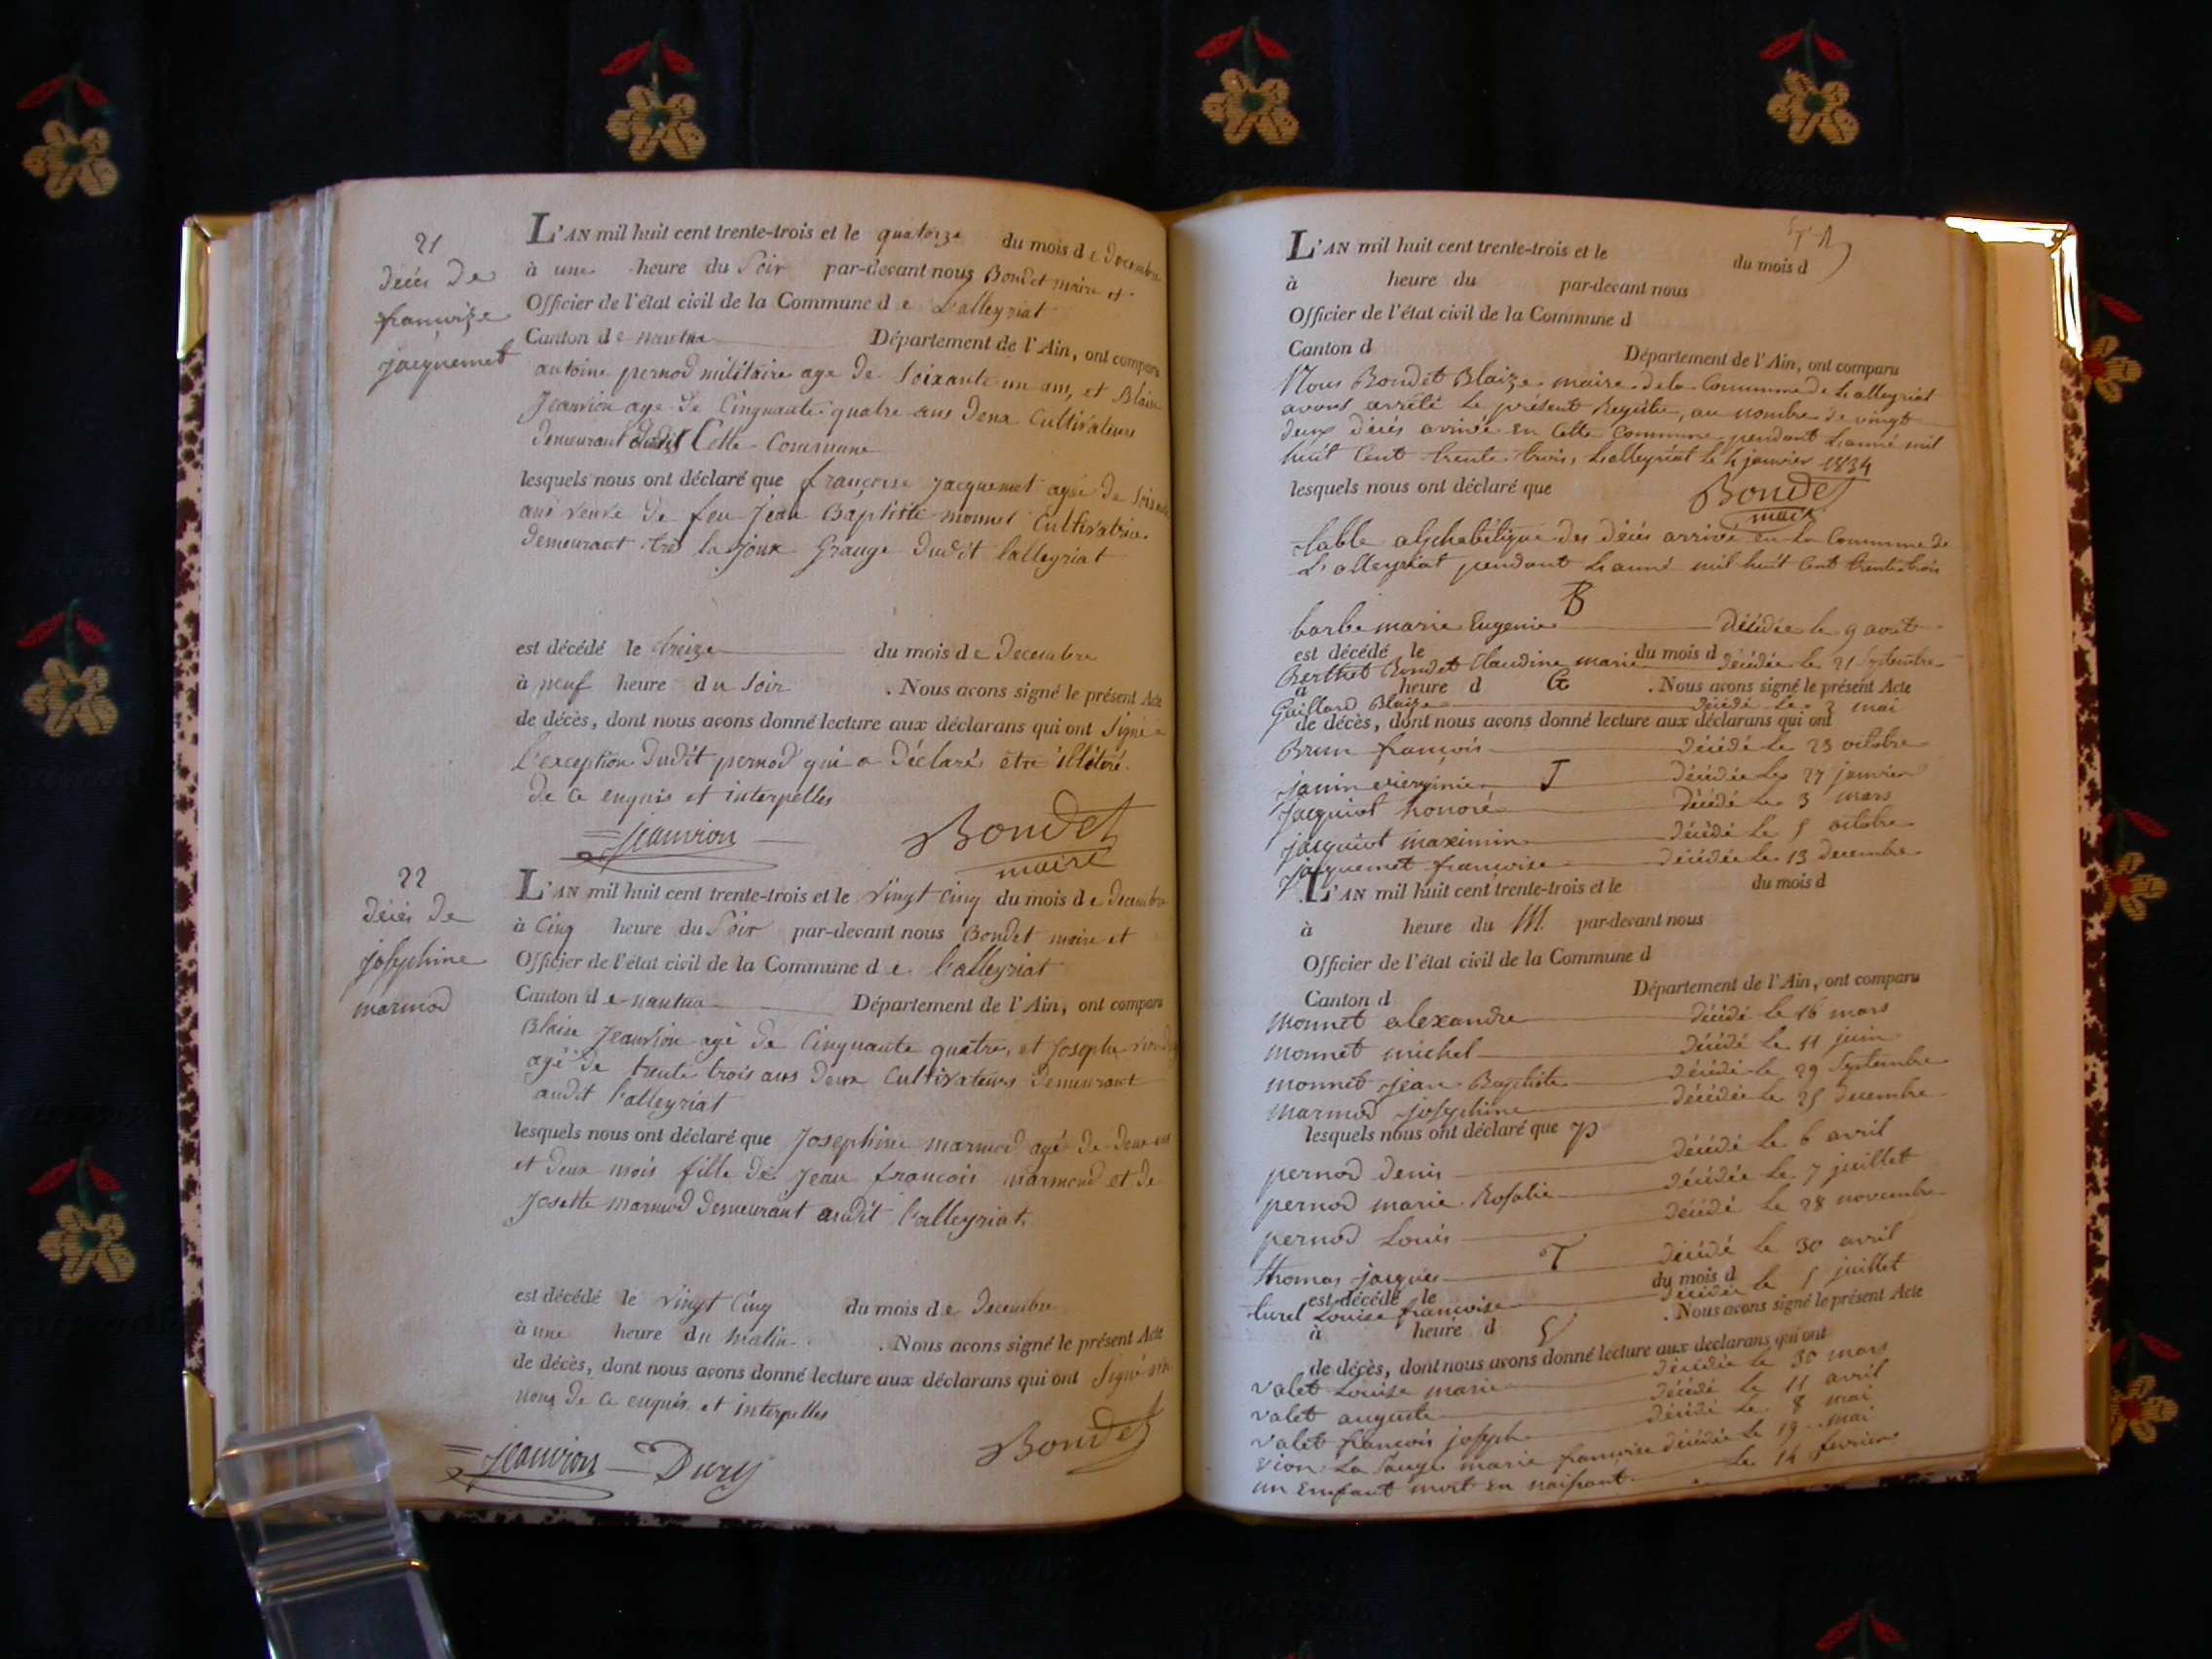 21
décès de
françoize
jacquemet
L'AN mil huit cent trente-trois et le quatorze du mois de Decembre
à une heure du Soir par-devant nous Bondet maire et
Officier de l'état civil de la Commune de L'alleyriat
Canton de nantua Département de l'Ain, ont comparu
antoine pernod militaire age de Soixante un ans, et Blaise
Jeanvion age de Cinquante quatre ans deux Cultivateurs
demeurant Cette Commune
lesquels nous ont déclaré que françoise jacquemet agée de
ans veuve de feu Jean Baptiste monnet Cultivatrice
demeurant la joux Grange dudit lalleyriat
est décédé le treize du mois de Decembre
à neuf heure du Soir . Nous avons signé le présent Acte
de décès, dont nous avons donné lecture aux déclarans qui ont Signé a
l'exception dudit pernod qui a déclaré être illétéré
de ce enquis et interpelles
Jeanvion Bondet
maire
22
décès de
josephine
marmod
L'AN mil huit cent trente-trois et le vingt cinq du mois de Decembre
à Cinq heure du Soir par-devant nous Bondet maire et
Officier de l'état civil de la Commune de l'alleyriat
Canton de nantua Département de l'Ain, ont comparu
Blaise Jeanvion agé de Cinquante quatre, et Joseph
agé de trente trois ans deux Cultivateurs demeurant
audit l'alleyriat
lesquels nous ont déclaré que Josephine marmod agé de deux ans
et deux mois fille de Jean françois marmond et de
Josette marmod demeurant audit l'alleyriat.
est décédé le vingt Cinq du mois de Decembre
à une heure du matin . Nous avons signé le présent Acte
de décès, dont nous avons donné lecture aux déclarans qui ont Signé
nous de ce enquis et interpelles
Jeanvion Dury Bondet
L'AN mil huit cent trente-trois et le du mois d
à heure du par-devant nous
Officier de l'état civil de la Commune d
Canton d Département de l'Ain, ont comparu
Nous Bondet Blaize maire de la Commune de Lalleyriat
avons arrêté le présent Registre, au nombre de vingt
deux décès arrivé en Cette Commune pendant Lanné mil
huit Cent trente trois, Lalleyriat le 4 janvier 1834
lesquels nous ont déclaré que Bondet
maire
table alphabétique des décès arrivé en la Commune de
L'alleyriat pendant Lanné mil huit Cent trente trois
B
barbe marie Eugenie décédée le 9 avril
est décédé le du mois d
Berthet Bondet Claudine marie décédée le 21 Septembre
à heure d G . Nous avons signé le présent Acte
Gaillard Blaize décédé le 2 mai
de décès, dont nous avons donné lecture aux déclarans qui ont
Brun françois décédé le 23 octobre
janin viergénie J décédée le 27 janvier
jacquiot honoré décédé le 3 mars
jacquiot maximin décédé le 5 octobre
jacquemet francoise décédée le 13 decembre
L'AN mil huit cent trente-trois et le du mois d
à heure du M. par-devant nous
Officier de l'état civil de la Commune d
Canton d Département de l'Ain, ont comparu
monnet alexandre décédé le 16 mars
monnet michel décédé le 11 juin
monnet jean Baptiste décédé le 29 Septembre
marmod josephine décédée le 25 decembre
lesquels nous ont déclaré que P
pernod denis décédé le 6 avril
pernod marie Rosalie décédée le 7 juillet
pernod Louis décédé le 28 novembre
T
thomas jacques décédé le 30 avril
est décédé le du mois d
turel Louise francoise décédée le 5 juillet
à heure d V . Nous avons signé le présent Acte
de décès, dont nous avons donné lecture aux déclarans qui ont
valet Louise marie décédée le 30 mars
valet auguste décédé le 11 avril
valet françois joseph décédé le 8 mai
vion La Sauge marie françoise décédée le 19 mai
un Enfant mort en naissant le 14 fevrier